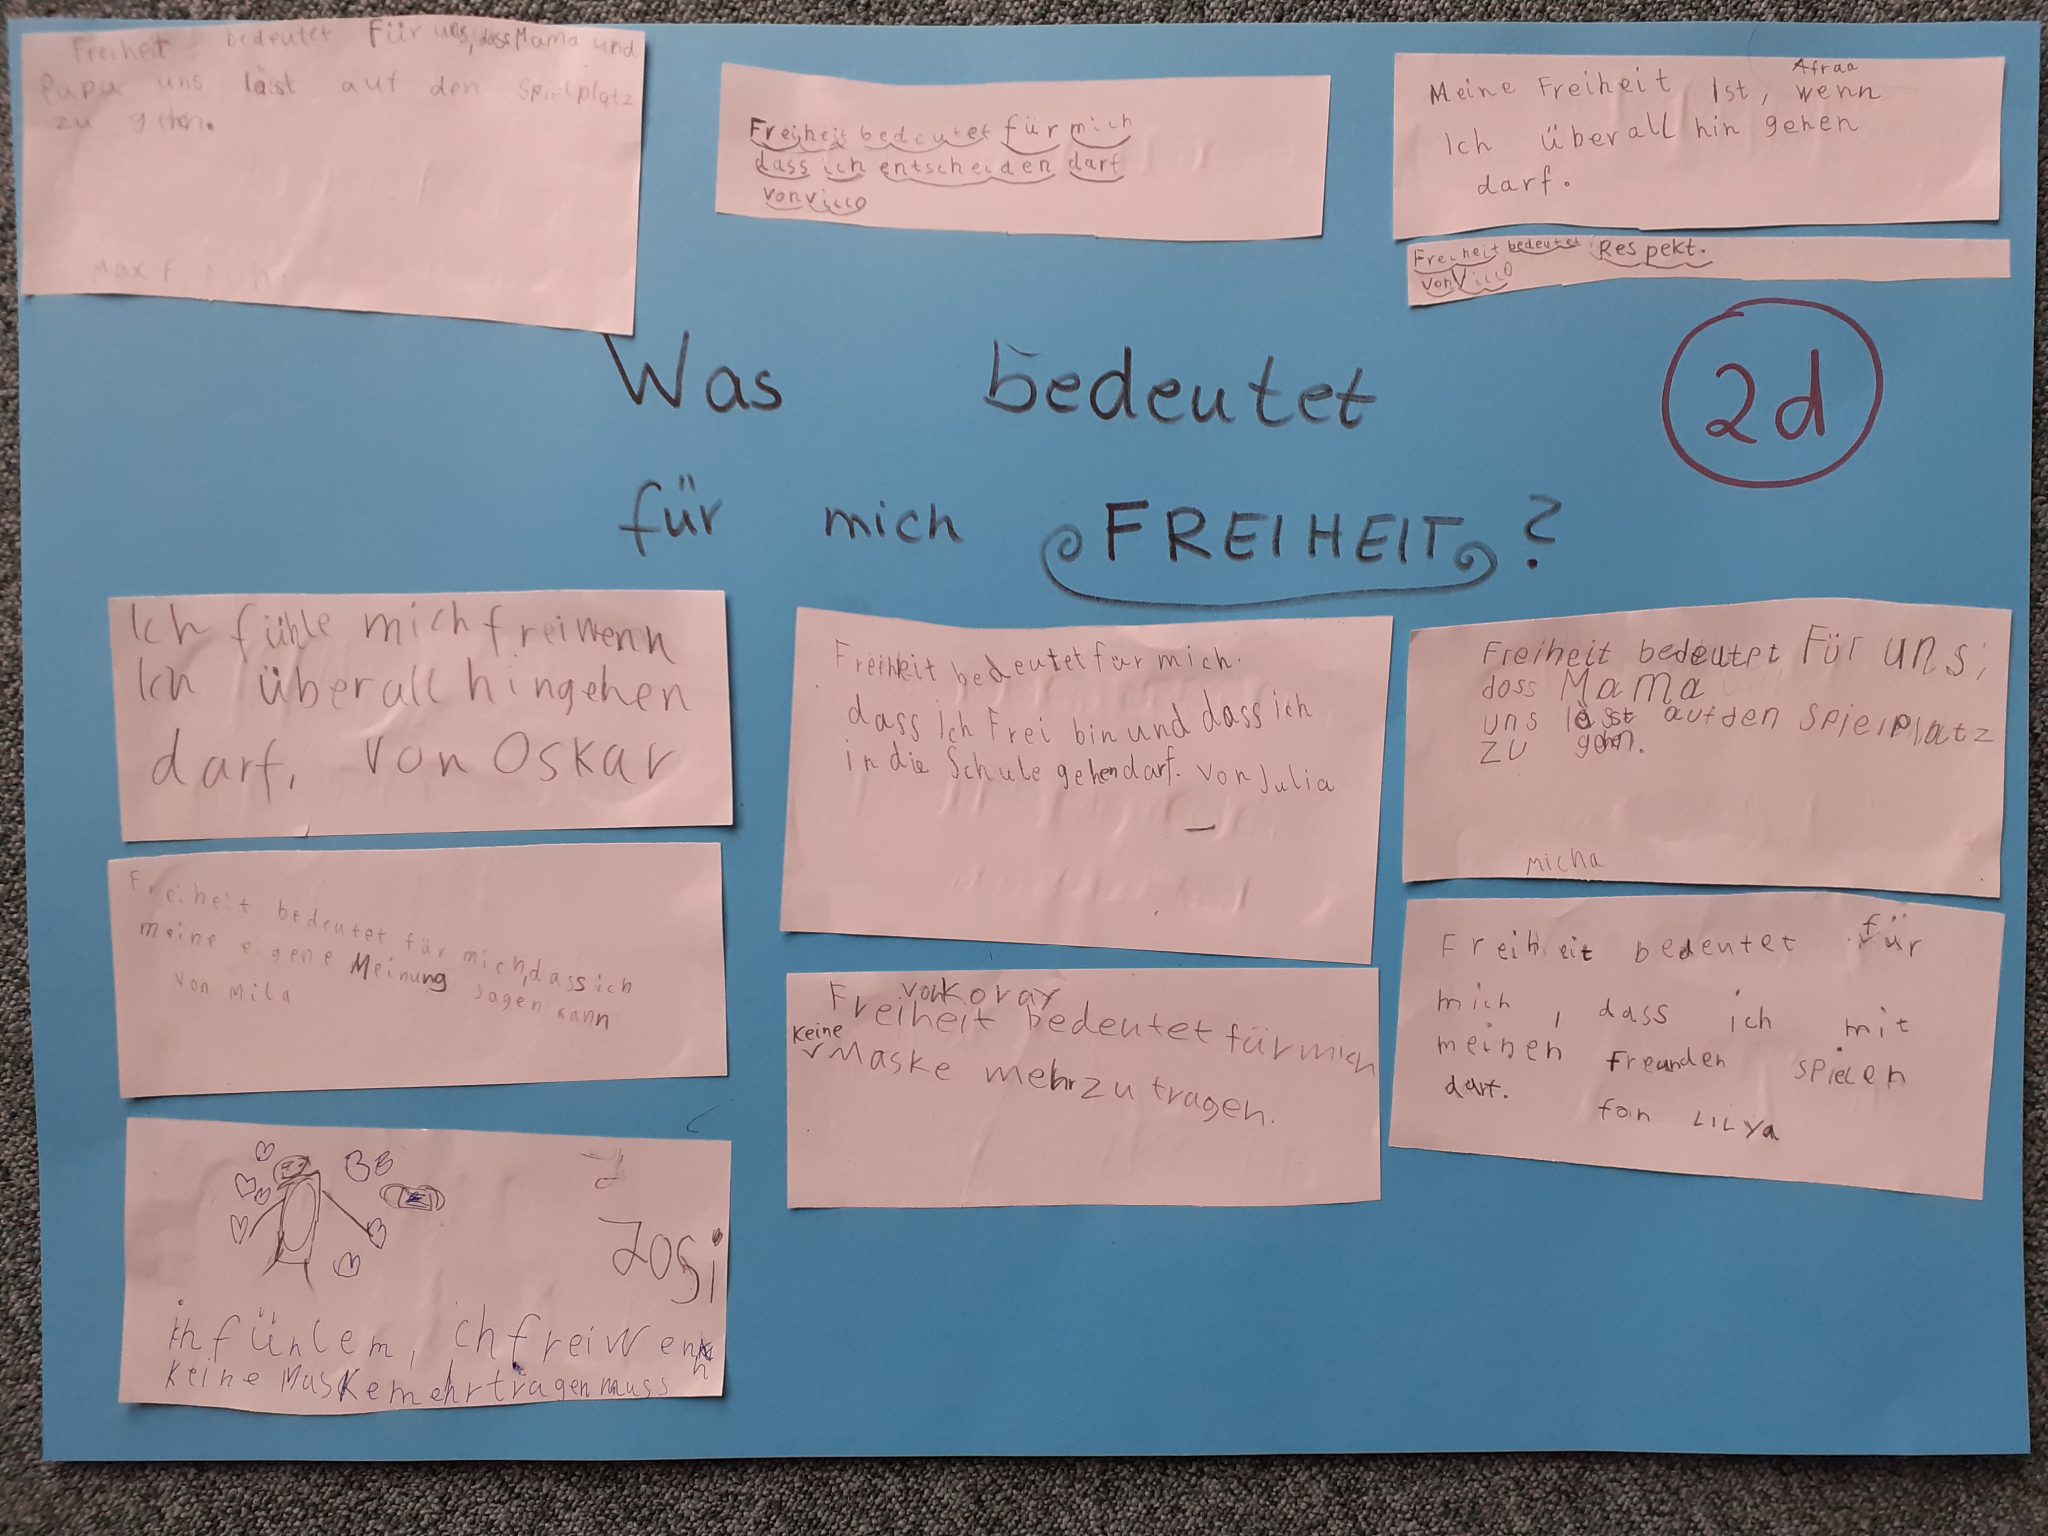 Freiheit bedeutet Für uns, dass Mama und
Papa uns lässt auf den Spielplatz
zu gehen.
Max F.
Freiheit bedeutet für mich
dass ich entscheiden darf
von Vicco
Afraa
Meine Freiheit Ist, wenn
Ich überall hin gehen
darf.
Freiheit bedeutet Respekt.
von Vicco
Was bedeutet
für mich FREIHEIT?
2d
Ich fühle mich frei wenn
Ich überall hingehen
darf, von Oskar
Freiheit bedeutet für mich.
dass Ich Frei bin und dass ich
in die Schule gehen darf. von Julia
Freiheit bedeutet Für uns,
doss Mama
uns lässt auf den Spielplatz
zu gehen.
Micha
Freiheit bedeutet für mich, dass ich
meine eigene Meinung sagen kann
von Mila
von Koray
Freiheit bedeutet für mich
keine Maske mehr zu tragen.
Freiheit bedeutet für
mich, dass ich mit
meinen Freunden spielen
darf.
fon LILYa
Josi
ich fünlem, ich frei wenn
keine Maske mehr tragen muss